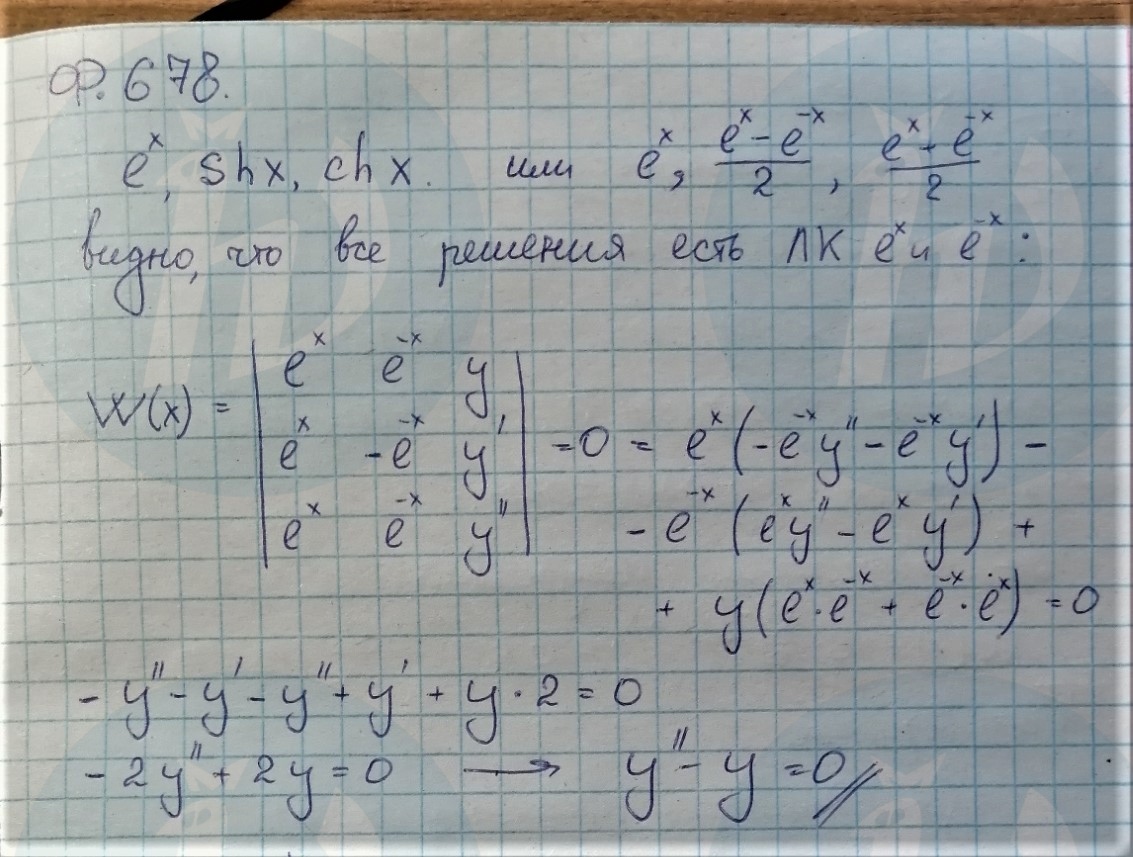 Ф. 678.
e^x, sh x, ch x. или e^x, (e^x - e^-x)/2, (e^x + e^-x)/2
видно, что все решения есть ЛК e^x и e^-x:
W(x) = | e^x e^-x y |
| e^x -e^-x y' | = 0 = e^x (-e^-x y'' - e^-x y') -
| e^x e^-x y'' | - e^-x (e^x y'' - e^x y') +
+ y(e^x · e^-x + e^-x · e^x) = 0
- y'' - y' - y'' + y' + y · 2 = 0
- 2y'' + 2y = 0 → y'' - y = 0 //